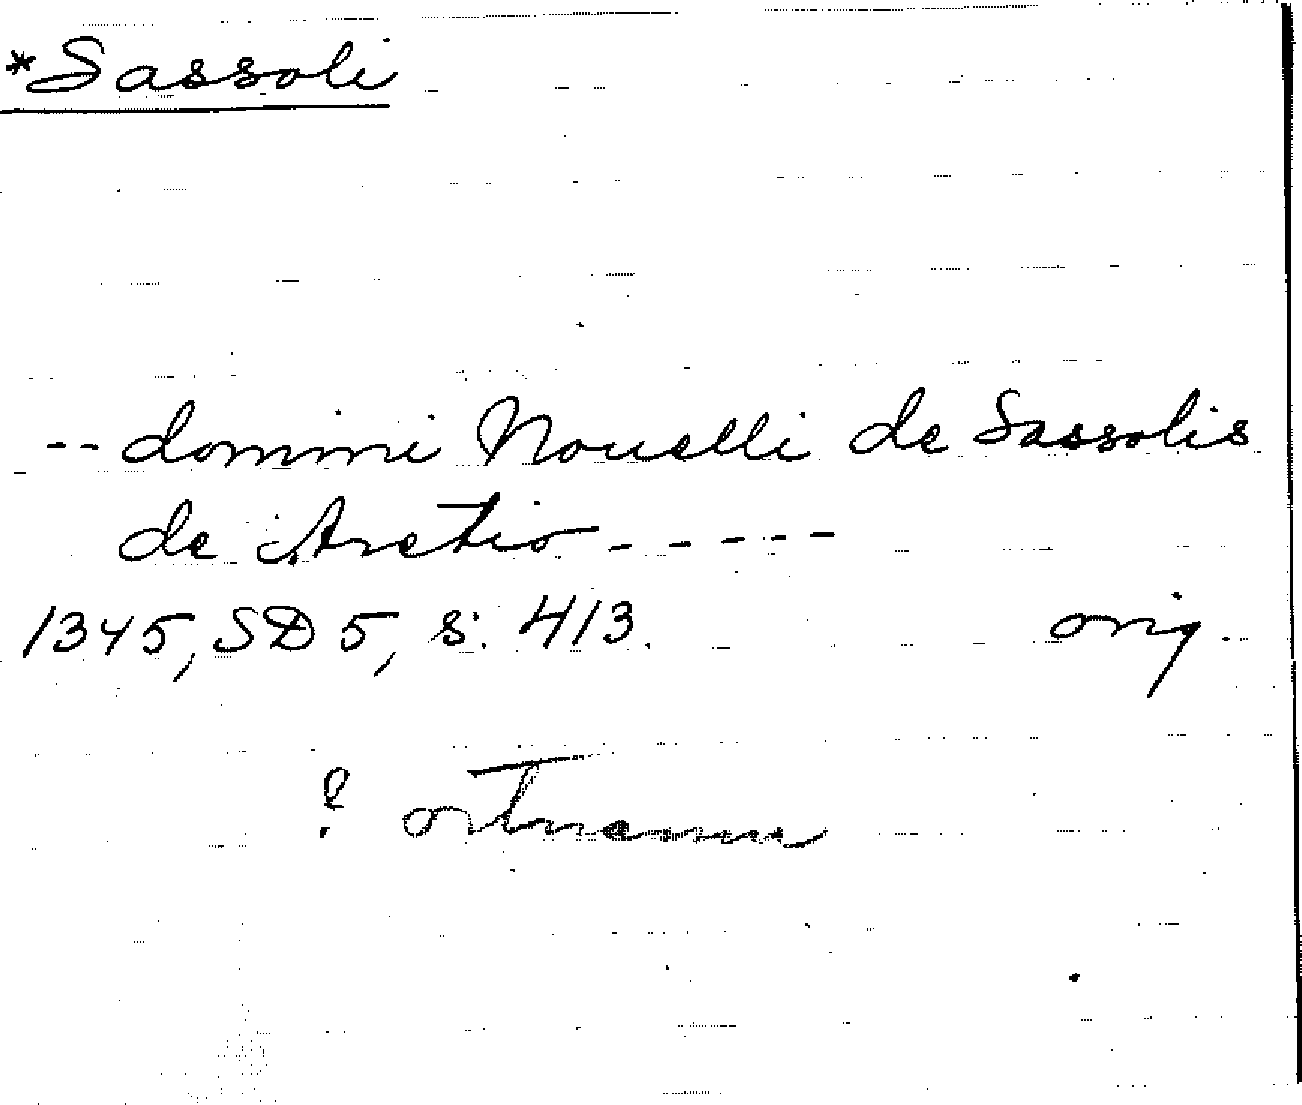 *Sassoli
-- domini Nouelli de Sassolis
de Aretio - - - - -
1345, SD 5, s. 413. orig.
? ortnamn